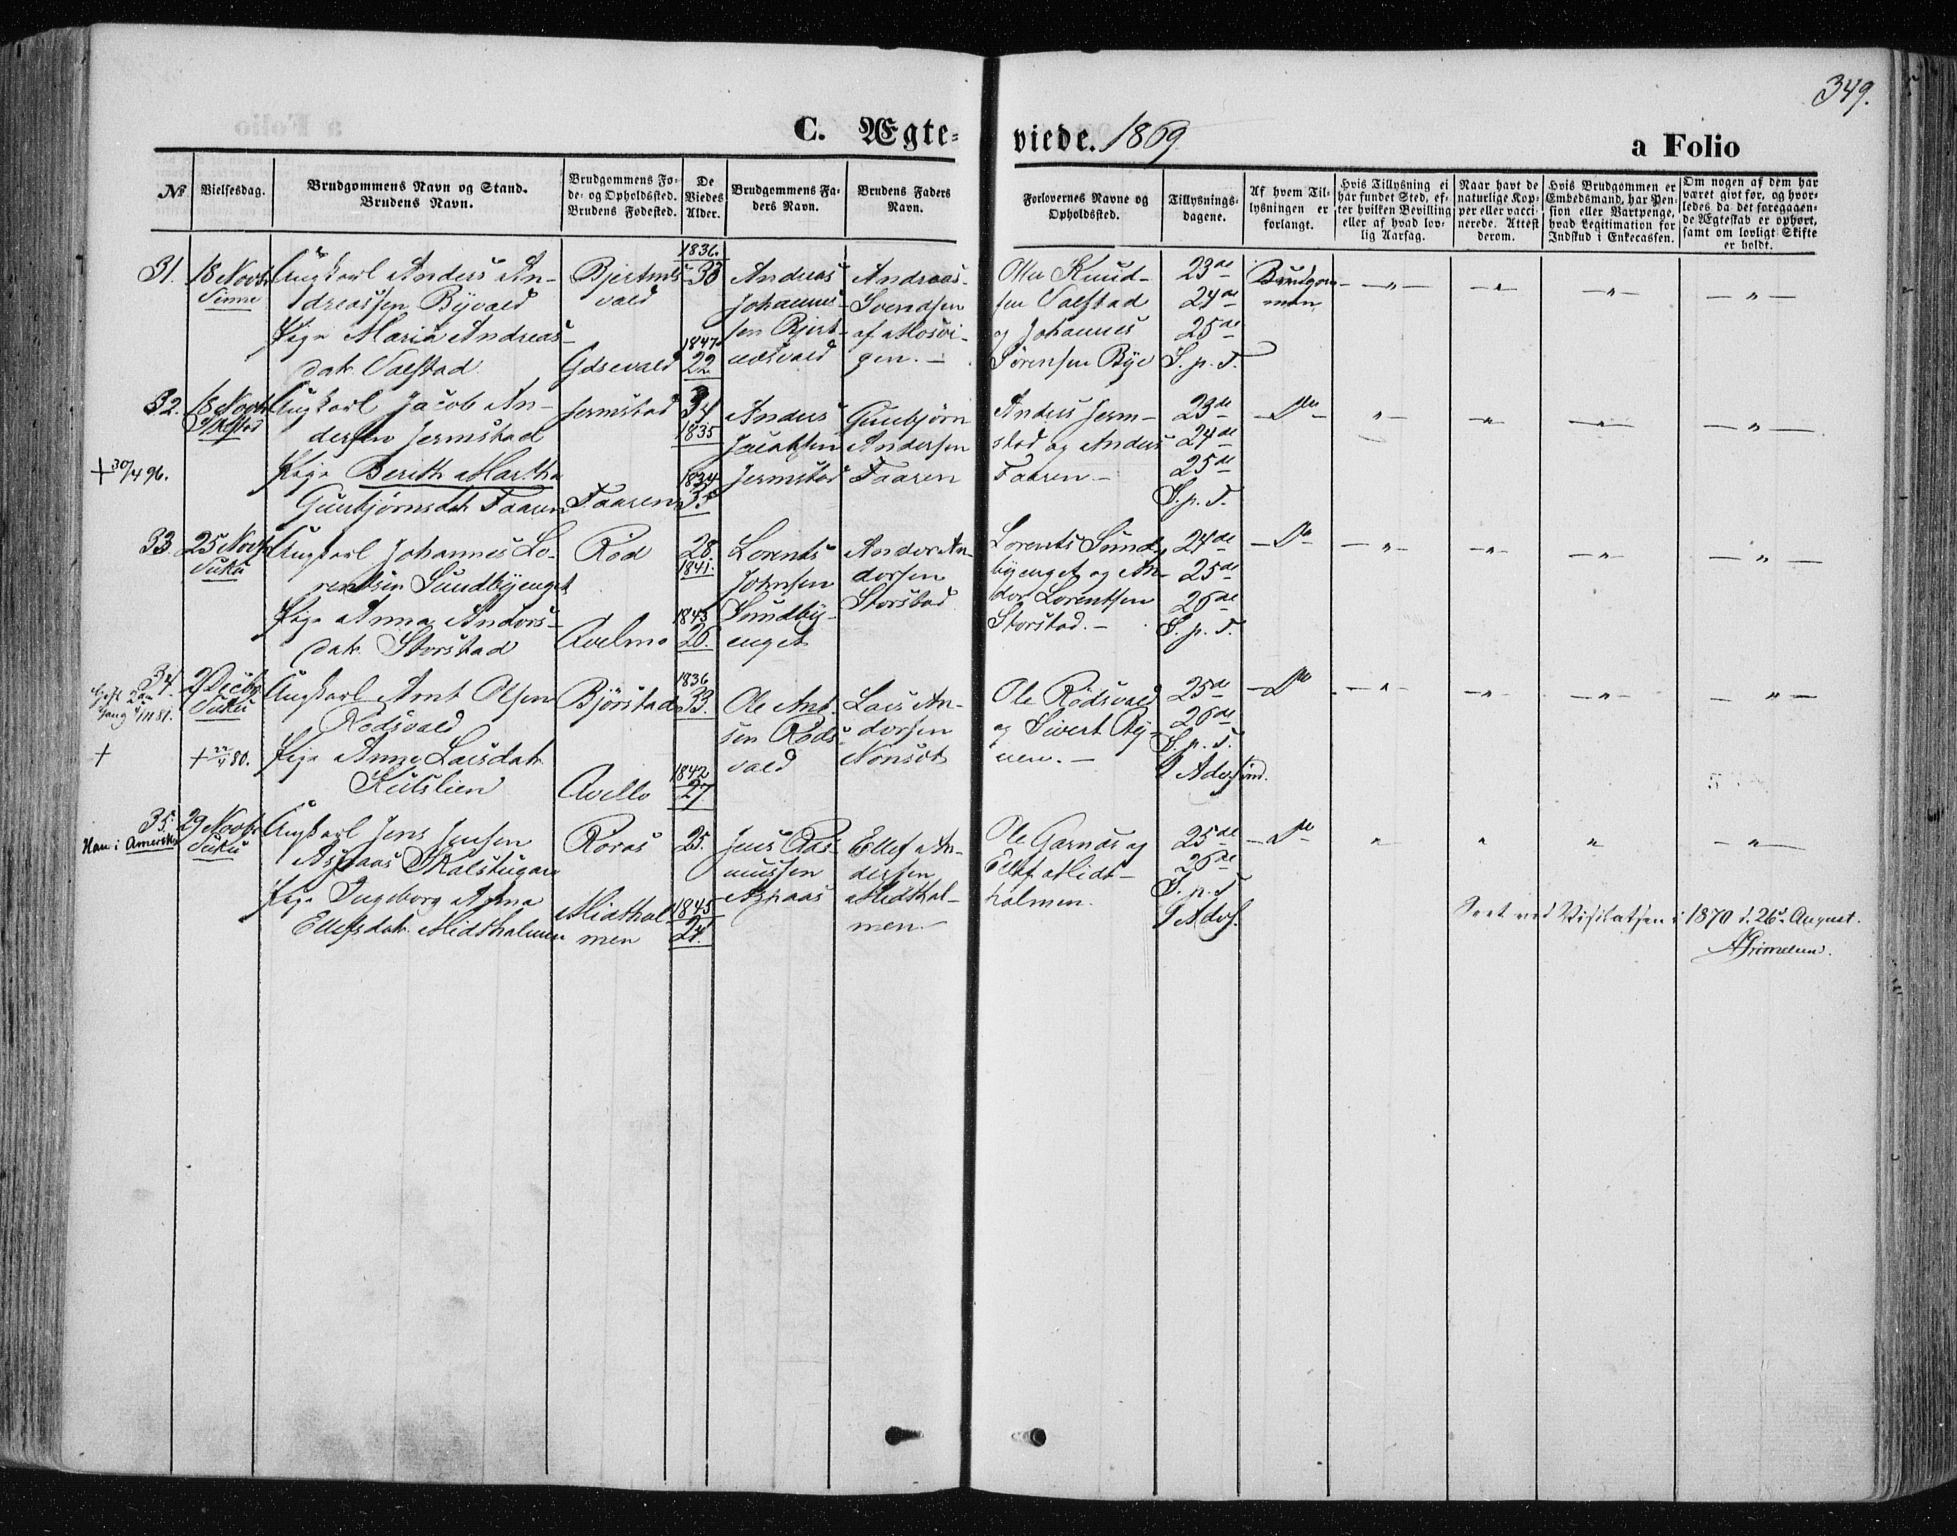 349.
C. Ægte-
viede. 1869
a Folio
No
Vielsesdag.
Brudgommens Navn og Stand.
Brudens Navn.
Brudgommens Fø-
de- og Opholdssted.
Brudens Fødested.
De
Viedes
Alder.
Brudgommens Fa-
ders Navn.
Brudens Faders
Navn.
Forlovernes Navne og
Opholdssted.
Tillysnings-
dagene.
Af hvem Til-
lysningen er
forlangt.
Hvis Tillysning ei
har fundet Sted, ef-
ter hvilken Bevilling
eller af hvad lov-
lig Aarsag.
Naar havt de
naturlige Kop-
per eller vacci-
nerede. Attest
derom.
Hvis Brudgommen er
Embedsmand, har Pen-
sion eller Vartpenge,
hvad Legitimation for
Indskud i Enkecassen.
Om nogen af dem har
været givt før, og hvor-
ledes da det foregaaen-
de Ægteskab er ophørt,
samt om lovligt Skifte
er holdt.
31.
18 Novbr
Vinne
Ungkarl Anders An-
dreassen Byvald
Pige Maria Andreas-
datr Valstad
Bjertnæs-
vald
Gdsevald
1836.
33
1847.
22
Andreas
Johannes-
sen Bjert-
næsvald
Andreas
Svendsen
af Mosvi-
gen. —
Otter Knud-
sen Valstad
og Johannes
Sørensen Bye
23de
24de
25de
S. p. T.
Brudgom-
men
32.
18 Novbr
Ungkarl Jacob An-
dersen Jermstad
Pige Berith Martha
Gunbjørnsdatr Faaren
+ 30/4 96.
Jermstad
Faaren
34
1835
1834
35
Anders
Jacobsen
Jermstad
Gunbjørn
Andersen
Faaren
Anders Jerm-
stad og Anders
Faaren. —
23de
24de
25de
S. p. T.
— Do —
33.
25 Novbr
Vuku
Ungkarl Johannes Lo-
rentsen Sundbyenget
Pige Anna Andors-
datr Storstad
Rød
Avelmo
28.
1841.
1843
26.
Lorents
Johnsen
Sundby-
enget
Andor An-
dorsen
Storstad
Lorents Sund-
byenget og An-
dor Lorentsen
Storstad. —
24de
25de
26de
S. p. T.
— Do
34.
2 Decbr
Vuku
Ungkarl Arnt Olsen
Rødsvald
Pige Anne Larsdatr
Kulslien
gift 2den
Gang 4/11 81.
+
+ 22/4 80.
Bjørstad
Avello
1836
33.
1842
27
Ole Ant.
sen Røds-
vald
Lars An-
dorsen
Nonsøt
Ole Rødsvald
og Sivert By-
nen. —
25de
26de
S. p. T.
— Do
35.
29 Novbr
Vuku
Han i Amerika
Ungkarl Jens Jensen
Aspaas Skalstugan
Pige Ingeborg Anna
Ellefsdatr Midtholmen
Røraas
Midthol-
men
25.
1845
24.
Jens Ras-
mussen
Aspaas
Ellef An-
dersen
Midthol-
men. —
Ole Garnæs og
Ellef Midt-
holmen.
25de
26de
S. p. T.
— Do
Seet ved Visitatsen i 1870 d. 26de August.
AGrimelund.